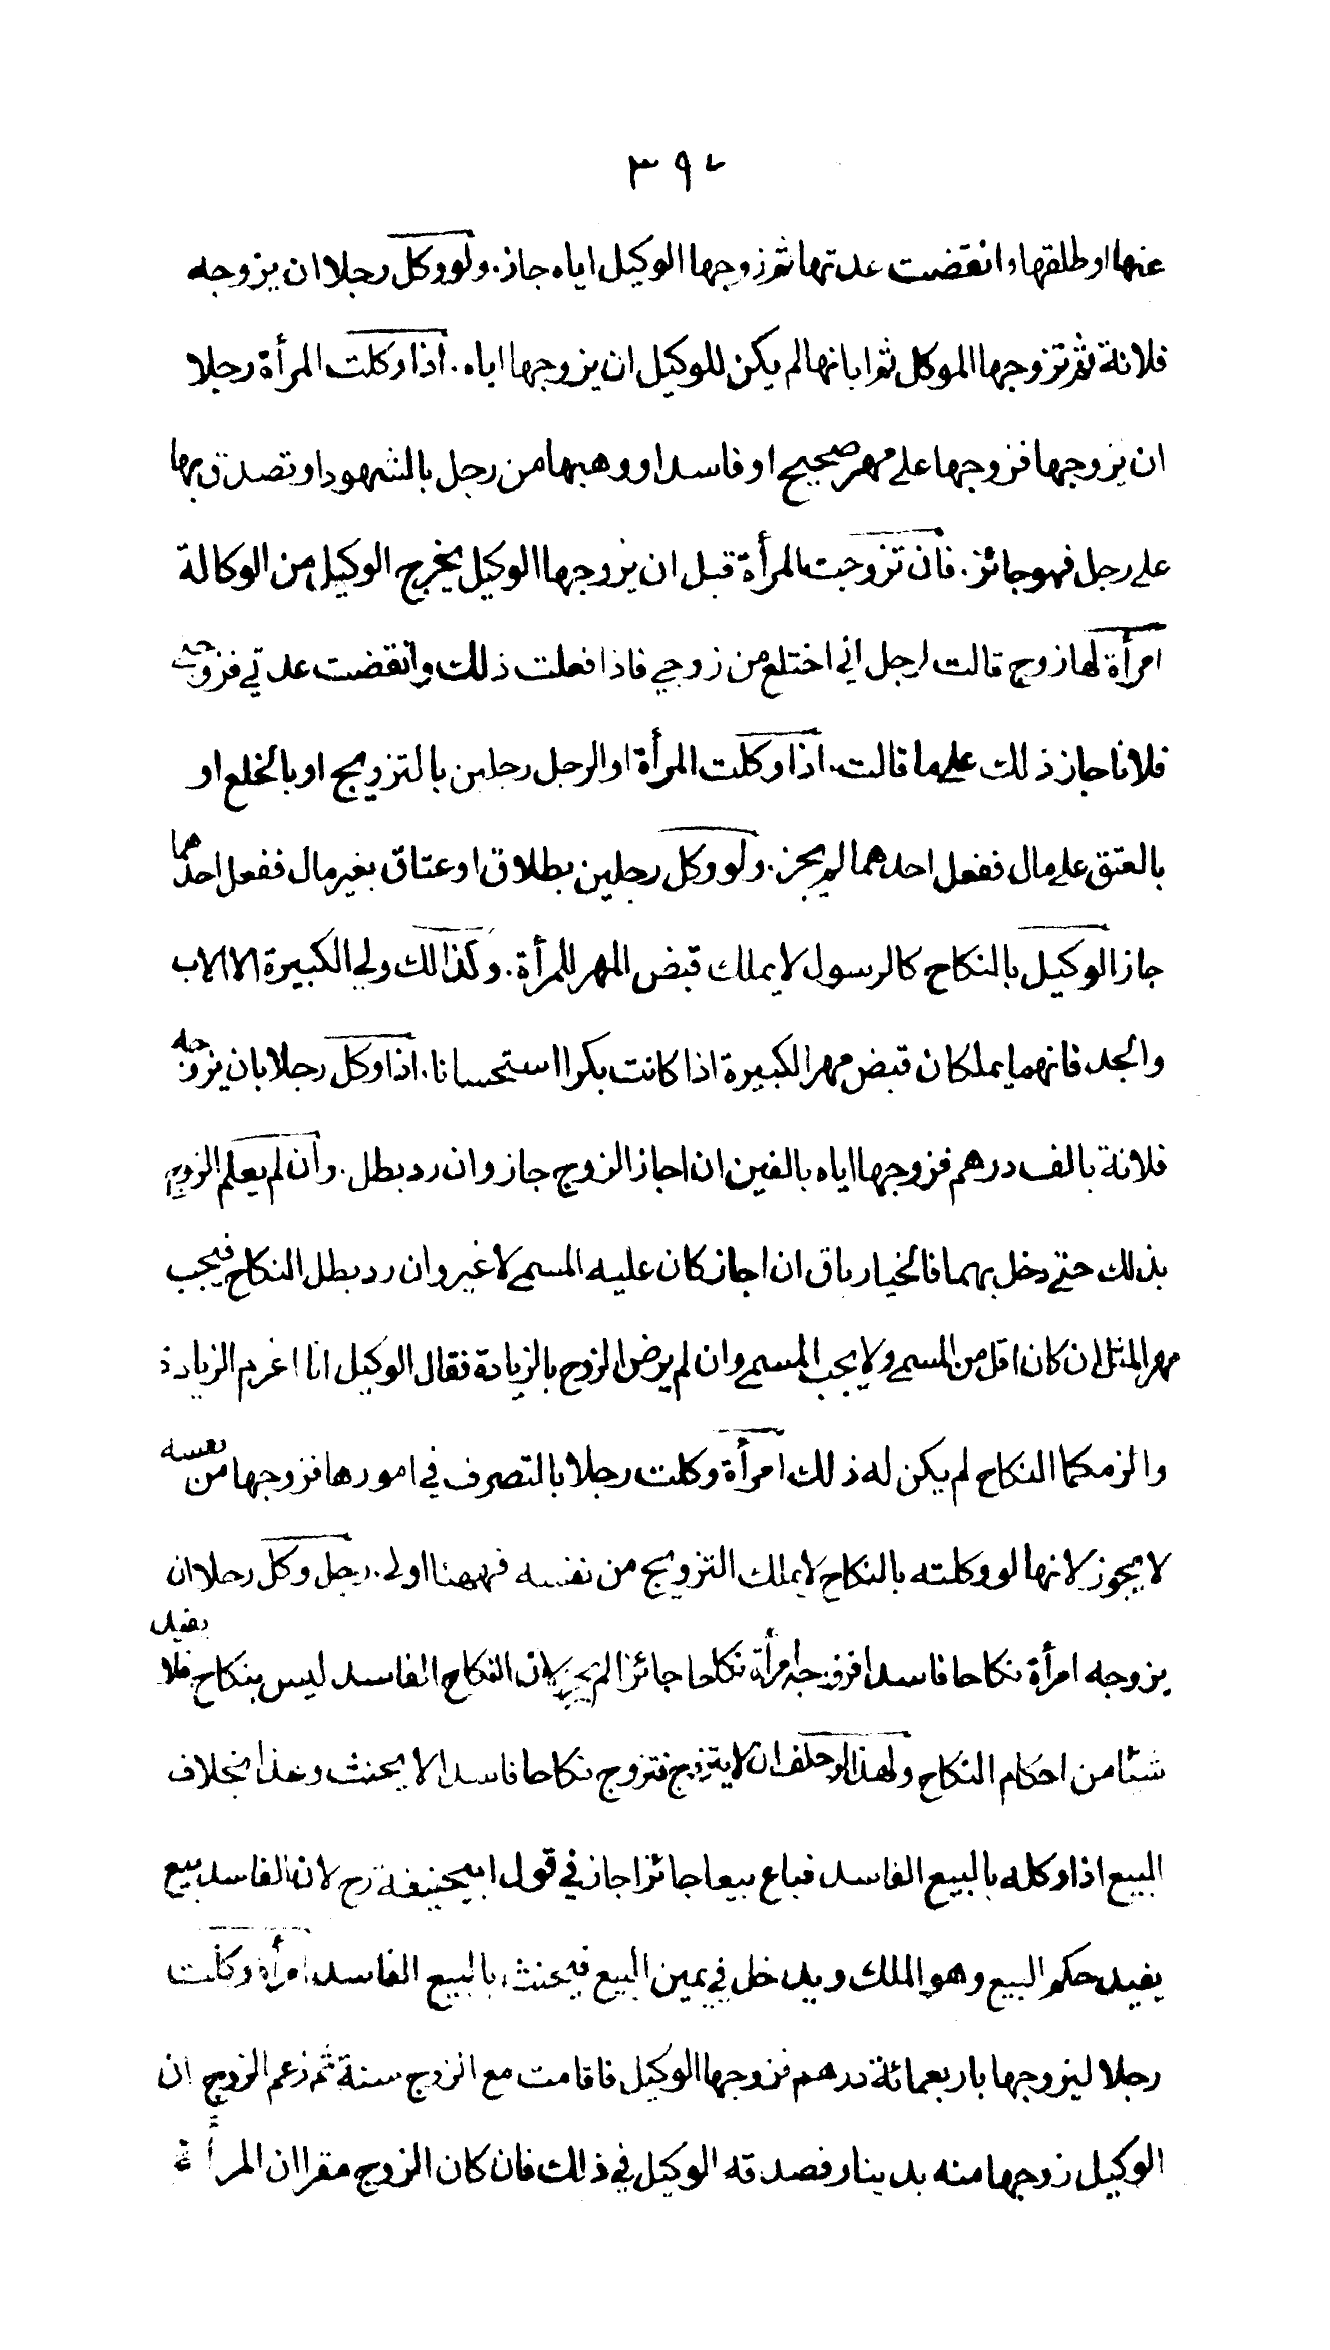 ٣٩٢
عنها او طلقها وانقضت عدتها ثم زوجها الوكيل اياه جاز. ولو وكل رجلا ان يزوجه
فلانة ثم تزوجها الموكل ثم ابانها لم يكن للوكيل ان يزوجها اياه. اذا وكلت المرأة رجلا
ان يزوجها فزوجها على مهر صحيح او فاسد او وهبها من رجل بالشهود او تصدق بها
على رجل فهو جائز. فان تزوجت المرأة قبل ان يزوجها الوكيل يخرج الوكيل من الوكالة
امرأة لها زوج قالت لرجل اني اختلع من زوجي فاذا فعلت ذلك وانقضت عدتي فزوجني
فلانا جاز ذلك على ما قالت. اذا وكلت المرأة او الرجل رجلين بالتزويج او بالخلع او
بالعتق على مال ففعل احدهما لم يجز. ولو وكل رجلين بطلاق او عتاق بغير مال ففعل احدهما
جاز الوكيل بالنكاح كالرسول لا يملك قبض المهر للمرأة. وكذالك ولي الكبيرة الا الاب
والجد فانهما يملكان قبض مهر الكبيرة اذا كانت بكرا استحسانا. اذا وكل رجلا بان يزوجه
فلانة بالف درهم فزوجها اياه بالفين ان اجاز الزوج جاز وان رد بطل. وان لم يعلم الزوج
بذلك حتى دخل بهما فالخيار باق ان اجاز كان عليه المسمى لا غير وان رد بطل النكاح فيجب
مهر المثل ان كان اقل من المسمى ولا يجب المسمى وان لم يرض الزوج بالزيادة فقال الوكيل انا اغرم الزيادة
والزمكما النكاح لم يكن له ذلك امرأة وكلت رجلا بالتصرف في امورها فزوجها من نفسه
لا يجوز لانها لو وكلته بالنكاح لا يملك التزويج من نفسه فههنا اولى. رجل وكل رجلا ان
يزوجه امرأة نكاحا فاسدا فزوجه امرأة نكاحا جائزا لم يجز لان النكاح الفاسد ليس بنكاح فلا يفيد
شئا من احكام النكاح ولهذا لو حلف ان لا يتزوج فتزوج نكاحا فاسدا لا يحنث وهذا بخلاف
البيع اذا وكله بالبيع الفاسد فباع بيعا جائزا جاز في قول ابيحنيفة رح لان الفاسد بيع
يفيد حكم البيع وهو الملك ويدخل في يمين البيع فيحنث بالبيع الفاسد امرأة وكلت
رجلا ليزوجها باربعمائة درهم فزوجها الوكيل فاقامت مع الزوج سنة ثم زعم الزوج ان
الوكيل زوجها منه بدينار فصدقه الوكيل في ذلك فان كان الزوج مقرا ان المرأة